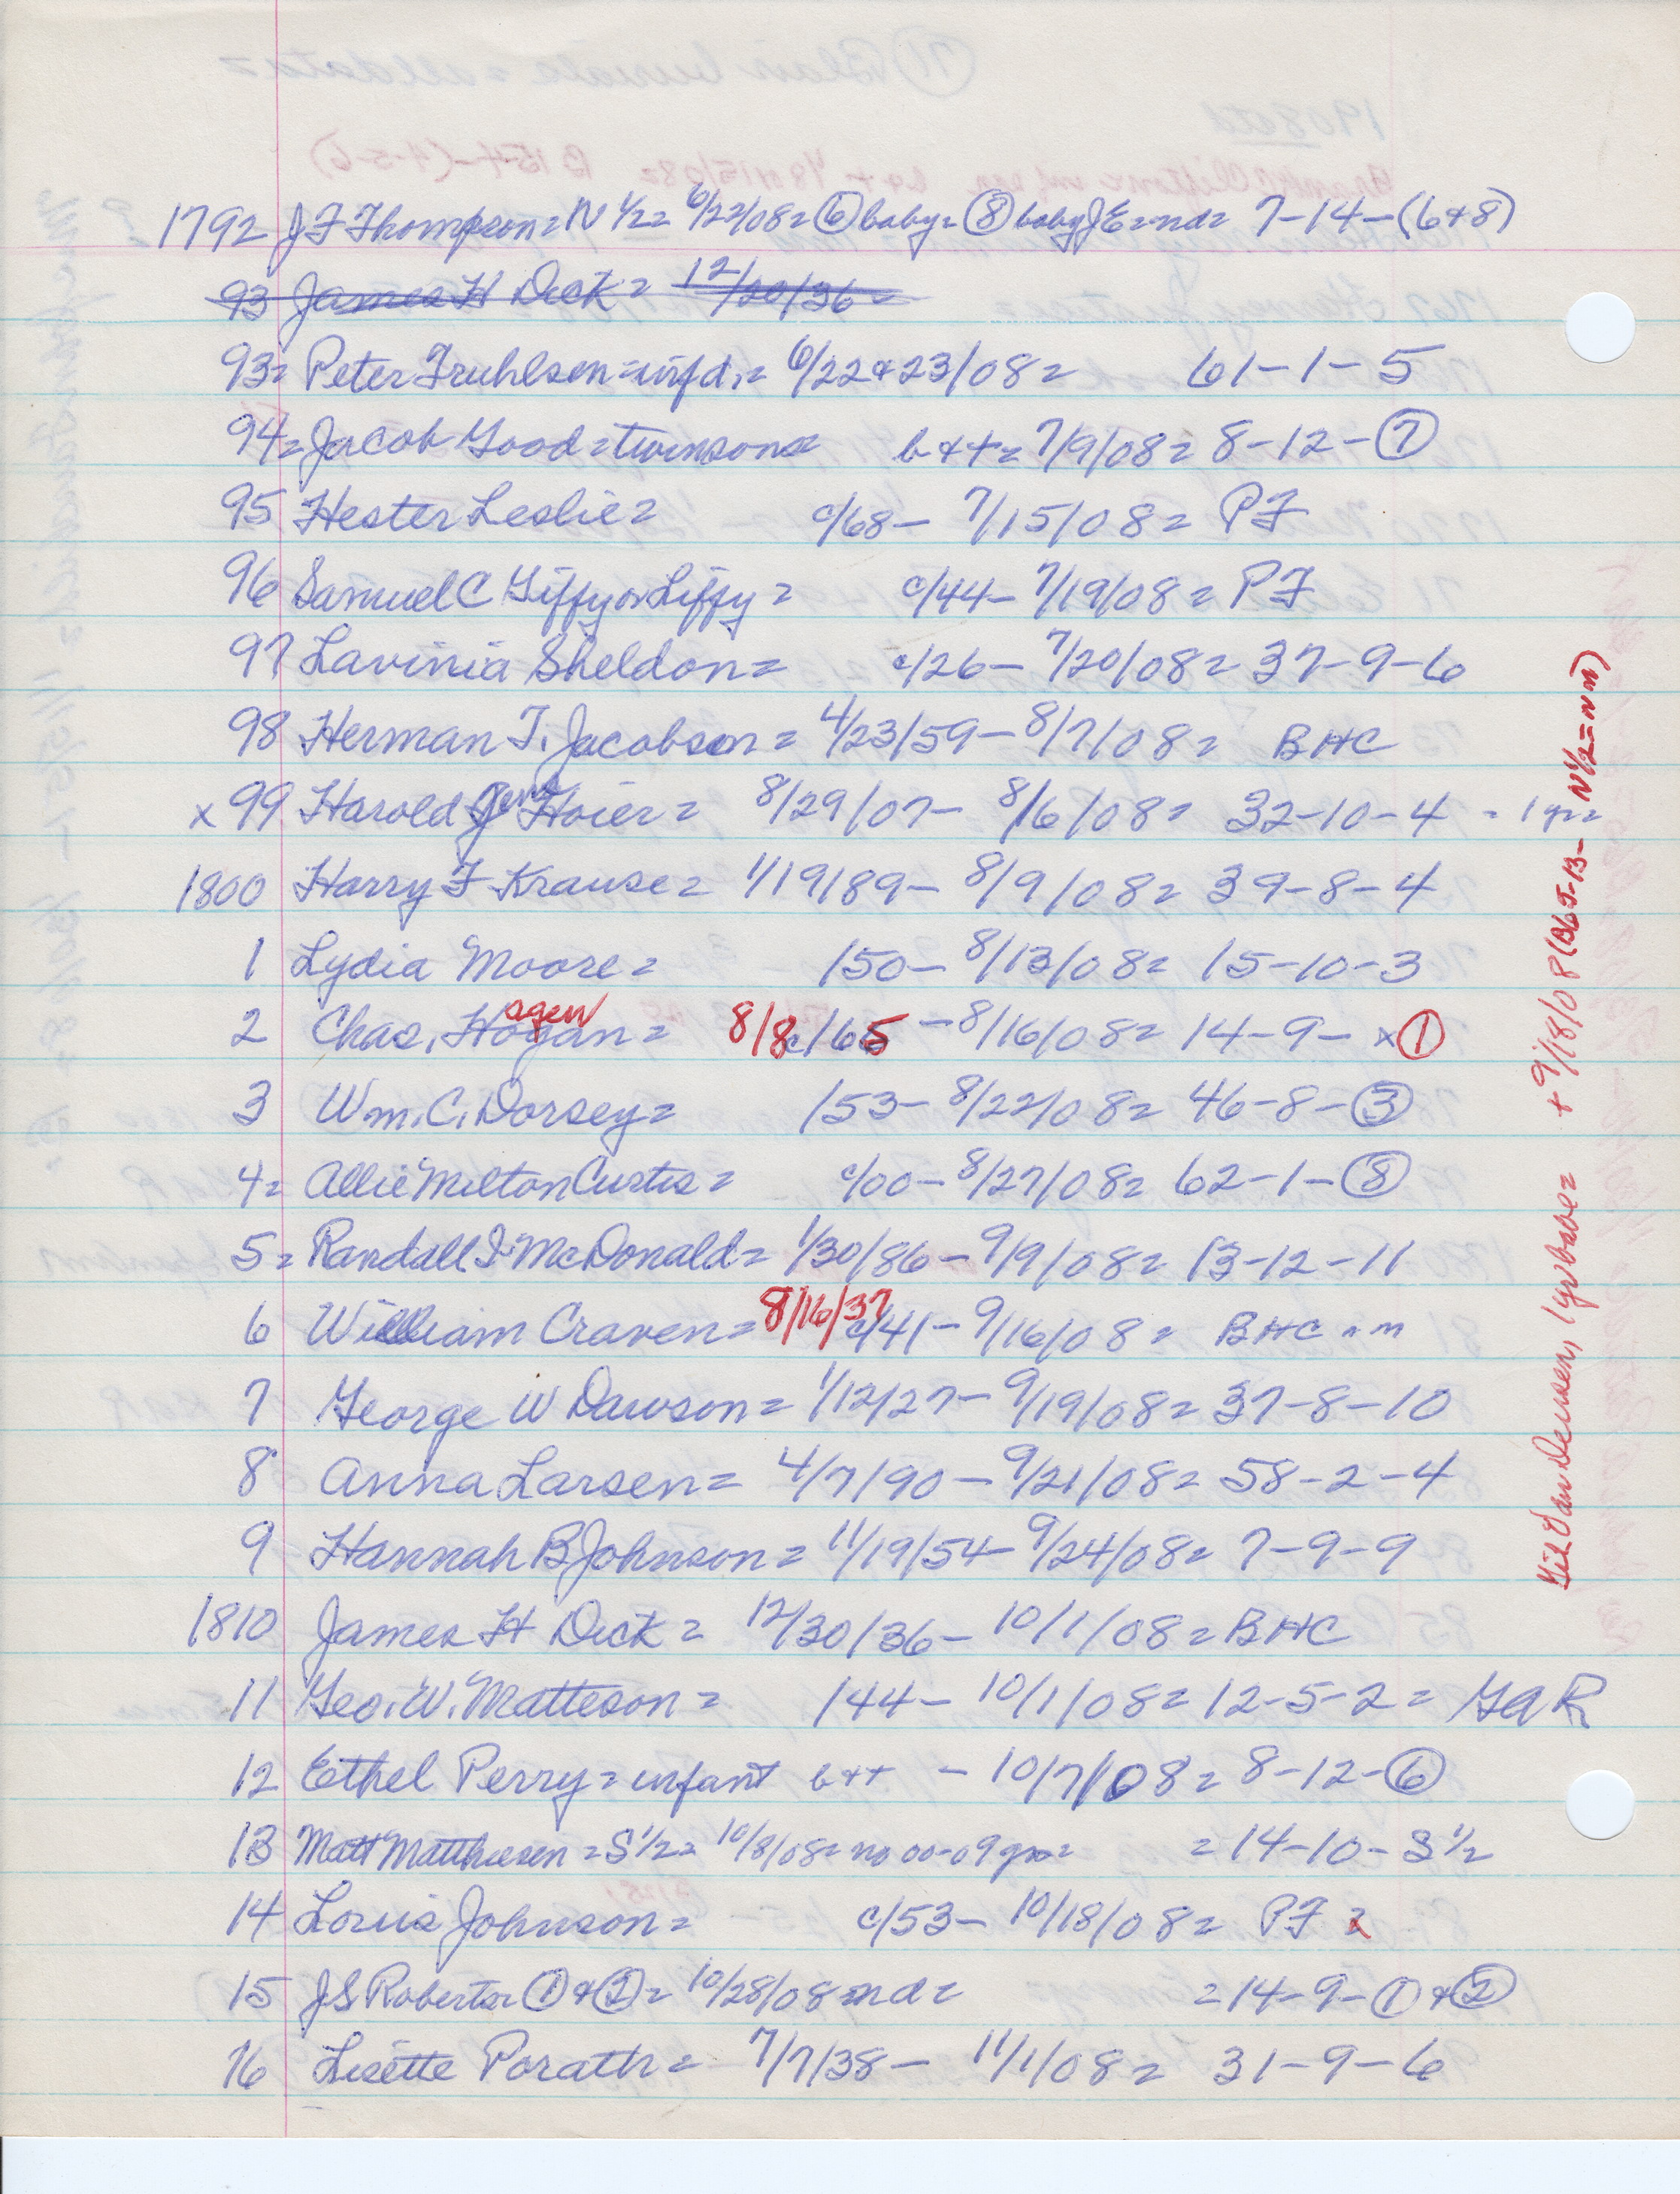 1792 J F Thompson = N 1/2 = 6/22/08 = ⑥ baby = ⑧ baby JE = nd = 7-14-(6+8)
93 James H Dick = 12/20/36 =
93 = Peter Fruhlsen = infd. = 6/22+23/08 = 61-1-5
94 = Jacob Good = twinsons b++ = 7/9/08 = 8-12-⑦
95 Hester Leslie = c/68 - 7/15/08 = PF
96 Samuel C Giffy or Liffy = c/44 - 7/19/08 = PF
97 Lavinia Sheldon = c/26 - 7/20/08 = 37-9-6
98 Herman T. Jacobson = 4/23/59 - 8/7/08 = BHC
x 99 Harold Jens Hoier = 8/29/07 - 8/6/08 = 32-10-4 = 1 yr =
1800 Harry F Krause = 1/19/89 - 8/9/08 = 39-8-4
1 Lydia Moore = /50 - 8/13/08 = 15-10-3
2 Chas. Hogan = agen 8/8 c/65 - 8/16/08 = 14-9- x ①
3 Wm. C. Dorsey = /53 - 8/22/08 = 46-8-③
4 = Allie Milton Curtis = c/00 - 8/27/08 = 62-1-⑧
5 = Randall I. McDonald = 1/30/86 - 9/9/08 = 13-12-11
6 William Craven = 8/16/37 c/41 - 9/16/08 = BHC nm
7 George W Dawson = 1/12/27 - 9/19/08 = 37-8-10
8 Anna Larsen = 4/7/90 - 9/21/08 = 58-2-4
9 Hannah B Johnson = 11/19/54 - 9/24/08 = 7-9-9
1810 James H Dick = 12/30/36 - 10/1/08 = BHC
11 Geo. W. Matteson = /44 - 10/1/08 = 12-5-2 = GAR
12 Ethel Perry = infant b++ - 10/7/08 = 8-12-⑥
13 Matt Matthiesen = S 1/2 = 10/8/08 = no 00-09 gs = = 14-10- S 1/2
14 Louis Johnson = c/53 - 10/18/08 = PF =
15 J S Roberts ① + ② = 10/28/08 = nd = = 14-9-① + ②
16 Lisette Porath = 7/7/38 - 11/1/08 = 31-9-6
Van Deusen, 1 yr + 9/18/08 - N 1/2 = nm)